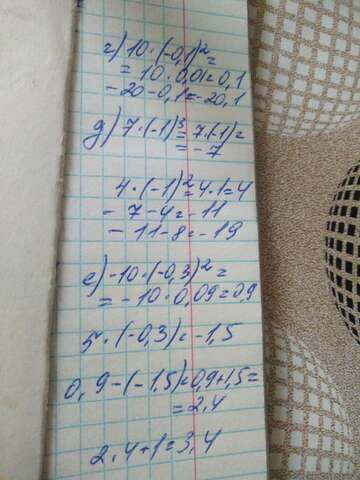 г) 10·(-0,1)²=
= 10·0,01=0,1
-20-0,1=-20,1
д) 7·(-1)³=7·(-1)=
=-7
4·(-1)²=4·1=4
-7-4=-11
-11-8=-19
е) -10·(-0,3)²=
=-10·0,09=0,9
5·(-0,3)=-1,5
0,9-(-1,5)=0,9+1,5=
=2,4
2,4+1=3,4